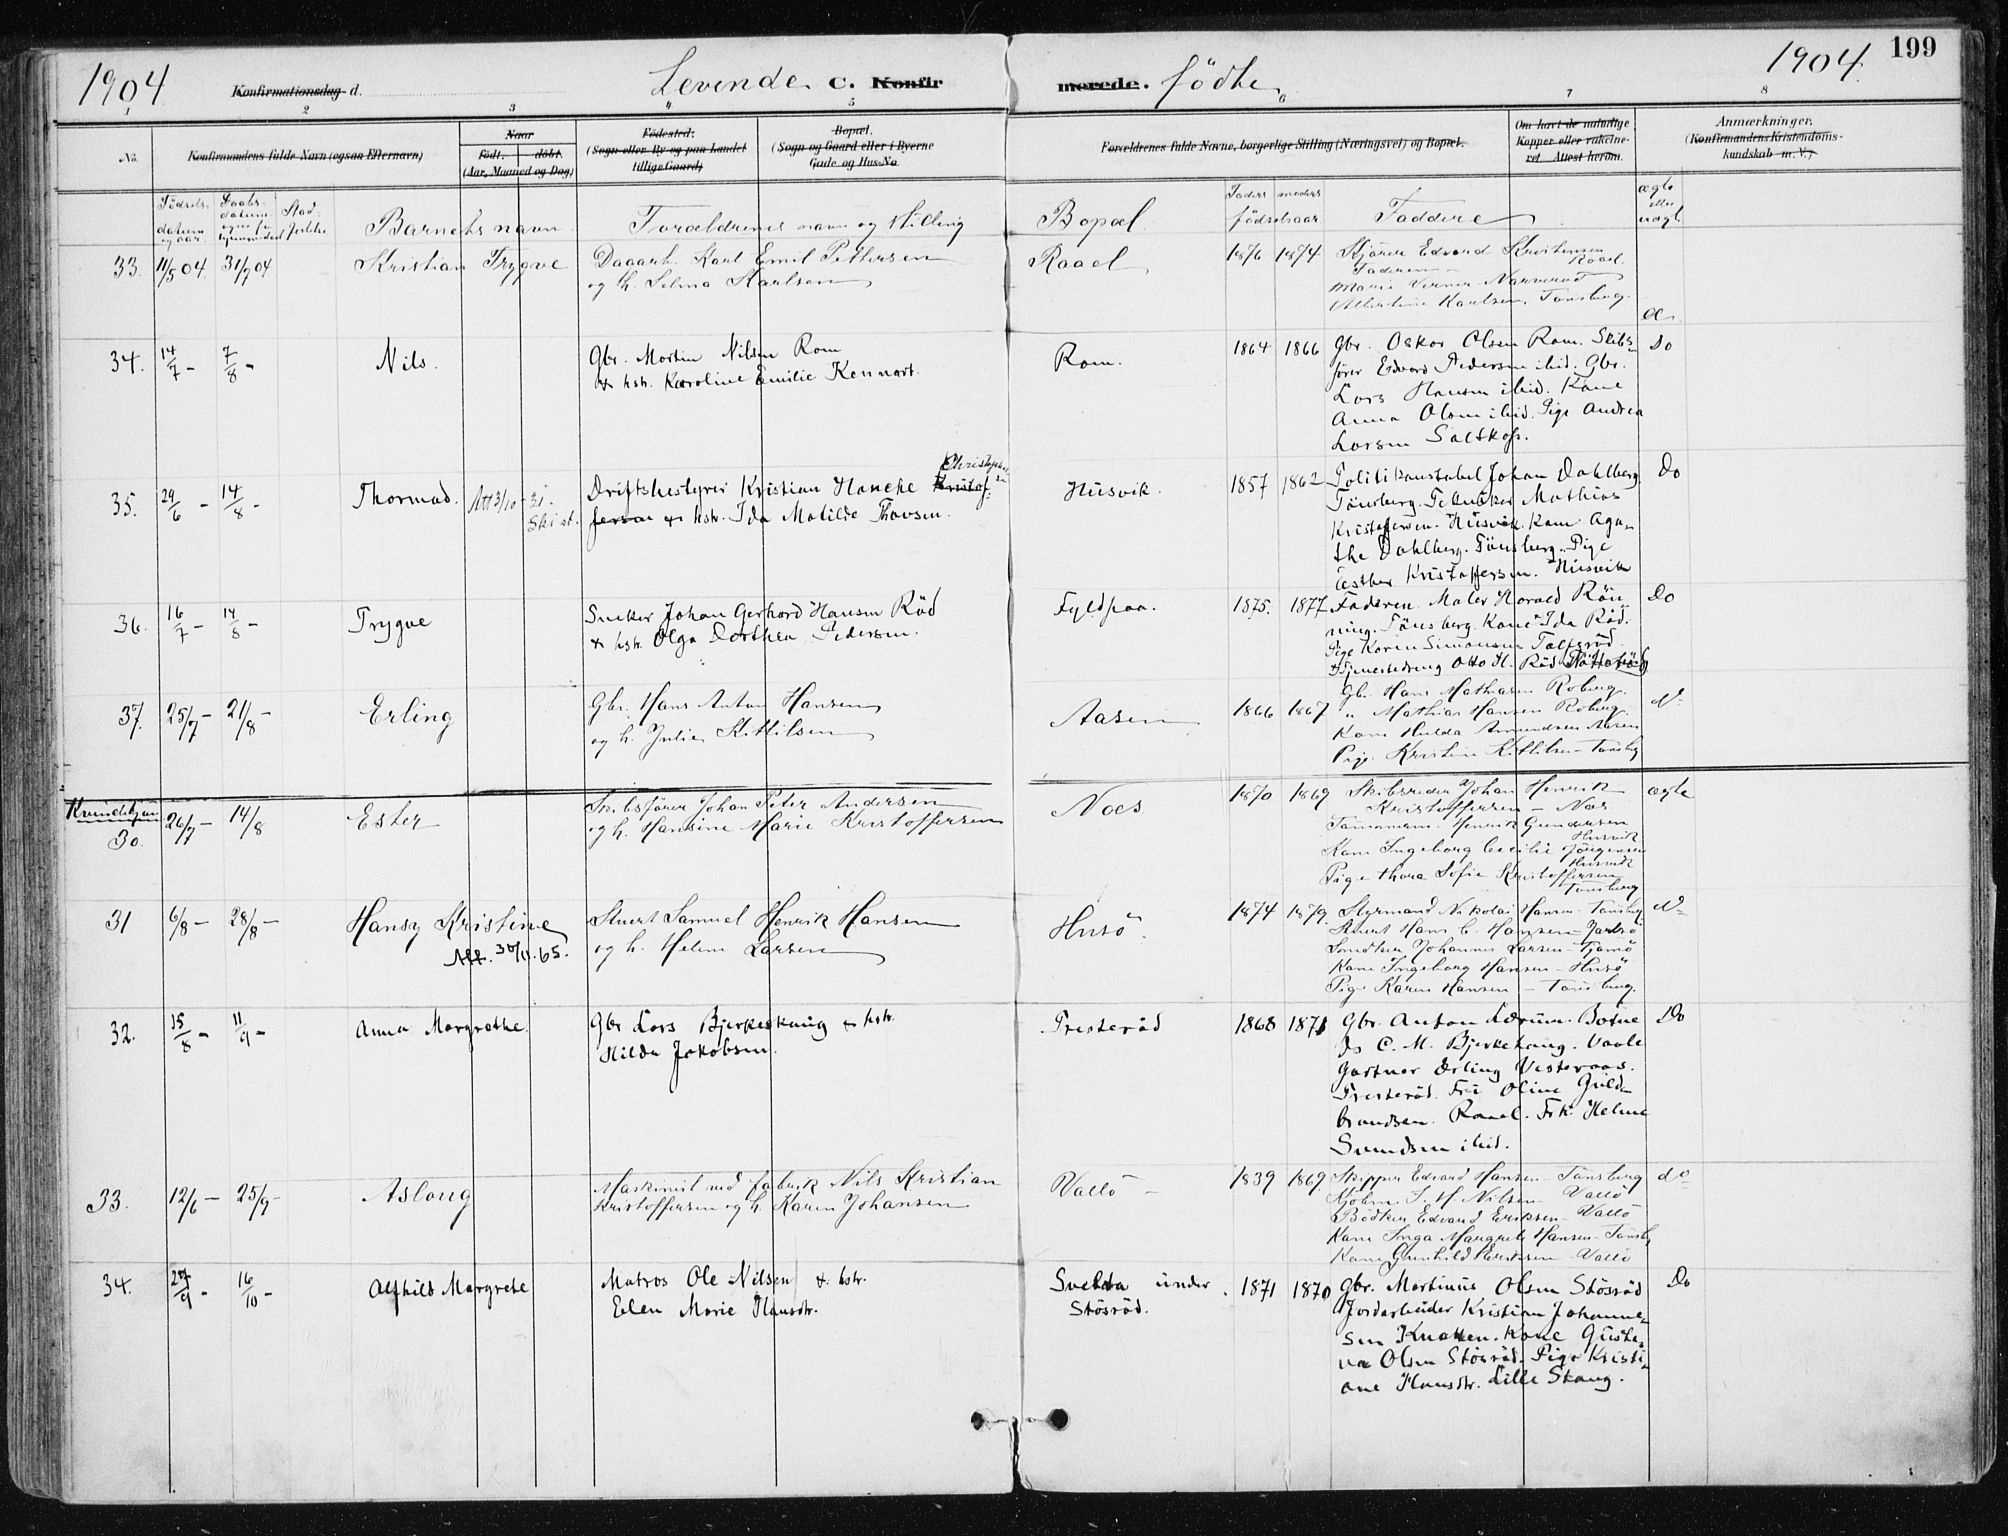 1904 Konfirmationsdag d. Levende C. Konfir merede. fødte 1904. 199
1 2 3 4 5 6 7 8
No. Konfirmandens fulde Navn (ogsaa Efternavn)
Naar
født. døbt.
(Aar, Maaned og Dag)
Fødested.
(Sogn eller By og paa Landet
tillige Gaard)
Bopæl.
(Sogn og Gaard eller i Byerne
Gade og Hus-No
Forældrenes fulde Navne, borgerlige Stilling (Næringsvei) og Bopæl.
Om havt de naturlige
Kopper eller vakcine-
ret. Attest herom.
Anmærkninger.
(Konfirmandens Kristendoms-
kundskab m. V.)
Fødsels-
datum
og aar.
Daabs-
datum
Barnets navn
Forældrenes navn og stilling
Bopæl
Faders moders
fødselsaar
Faddere
ægte
eller
uægte
33. 11/5 04. 31/7 04 Kristian Trygve
Dagarb. Karl Emil Pettersen
og h. Selma Karlsen
Raael
1876 1874
Kjører Edvard Kristensen
Raael.
Faderen
Marie Verner Narverød
Albertine Karlsen, Tønsberg.
34. 14/7 - 7/8 - Nils.
Gbr. Martin Nilsen Rom
& hstr. Karoline Emilie Kennart.
Rom.
1864 1866
Gbr. Oskar Olsen Rom. Skibs-
fører Edvard Pedersen ibid. Gbr.
Lars Hansen ibid. Kone
Anna Olsen ibid. Pige Andrea
Larsen Saltkop.
Do
35. 29/6 - 14/8 - Thormod. Att 3/10 - 31.
Driftsbestyrer Kristian Hancke Kristof-
Christophersen
fersen & hstr. Ida Matilde Thovsen.
Husvik.
1857 1862
Politikonstabel Johan Dahlberg
Tönsberg. Tekniker Mathias
Kristoffersen. Husvik. Kone Aga-
the Dahlberg. Tönsberg. Pige
Esther Kristoffersen. Husvik
Do
36. 16/7 - 14/8 - Trygve
Snekker Johan Gerhard Hansen Röd
& hstr. Olga Dorthea Pedersen.
Fyldpaa.
1875. 1877
Faderen. Maler Harald Rön-
ning. Tönsberg. Kone Ida Röd.
Pige Karen Simonsen Tolfsröd
Tjenestedreng Otto H. Röd
Do
37. 25/7 - 21/8 - Erling
Gbr. Hans Anton Hansen
og h. Julie Kittilsen
Aasen
1866 1867
Gbr. Hans Mathiasen Roberg.
" Mathias Hansen Roberg
Kone Hulda Amundsen Aasen
Pige Kristine Kittilsen - Tønsbg
do
Kvindekjøn
30. 26/7 - 14/8 Ester
Skibsfører Johan Peter Andersen
og h. Hansine Marie Kristoffersen
Noes
1870 1869
Skibsreder Johan Henrik
Kristoffersen - Nøs
Tømmerm. Henrik Gundersen
Husvik
Kone Ingeborg Cecilie Jörgensen
Husvik
Pige Thora Sofie Kristoffersen
Tønsberg
ægte
31 6/8 - 28/8 - Hansy Kristine
Att. 30/11. 65.
Stuert Samuel Henrik Hansen
og h. Helene Larsen
Husö.
1874 1879.
Styrmand Nikolai Hansen - Tønsbg
Stuert Hans C. Hansen -
Snedker Johannes Larsen - Tjømö
Kone Ingeborg Hansen - Husö
Pige Karen Hansen - Tønsberg.
do
32. 15/8 - 11/9 - Anna Margrethe.
Gbr. Lars Bjerkeskaug & hstr.
Hilda Jakobsen.
Presteröd
1868 1871
Gbr. Anton Lærum. Botne
Do C. M. Bjerkehaug. Vaale
Gartner Erling Vesteraas.
Presteröd. Frk Oline Guld-
brandsen. Raael. Frk. Helene
Svendsen ibid.
Do
33. 12/6 - 25/9 - Aslaug
Maskinist ved fabrik Nils Kristian
Kristoffersen og h. Karen Johansen
Vallö -
1839 1869
Skipper Edvard Hansen - Tønsberg
Kjøbm. J. H. Nilsen - Vallö
Bødker Edvard Eriksen - Vallö
Kone Inga Margrete Hansen - Tønsbg
Kone Gunhild Eriksen - Vallö
do
34. 27/9 - 16/10 - Alfhild Margrete
Matros Ole Nilsen & hstr.
Elen Marie Hansdtr.
Svelta under
Stösröd.
1871 1870
Gbr. Martinius Olsen Stösröd
Jordarbeider Kristian Johanne-
sen Knatten. Kone Gusta-
va Olsen Stösröd. Pige Kristi-
ane Hansdtr. Lille Skaug.
Do